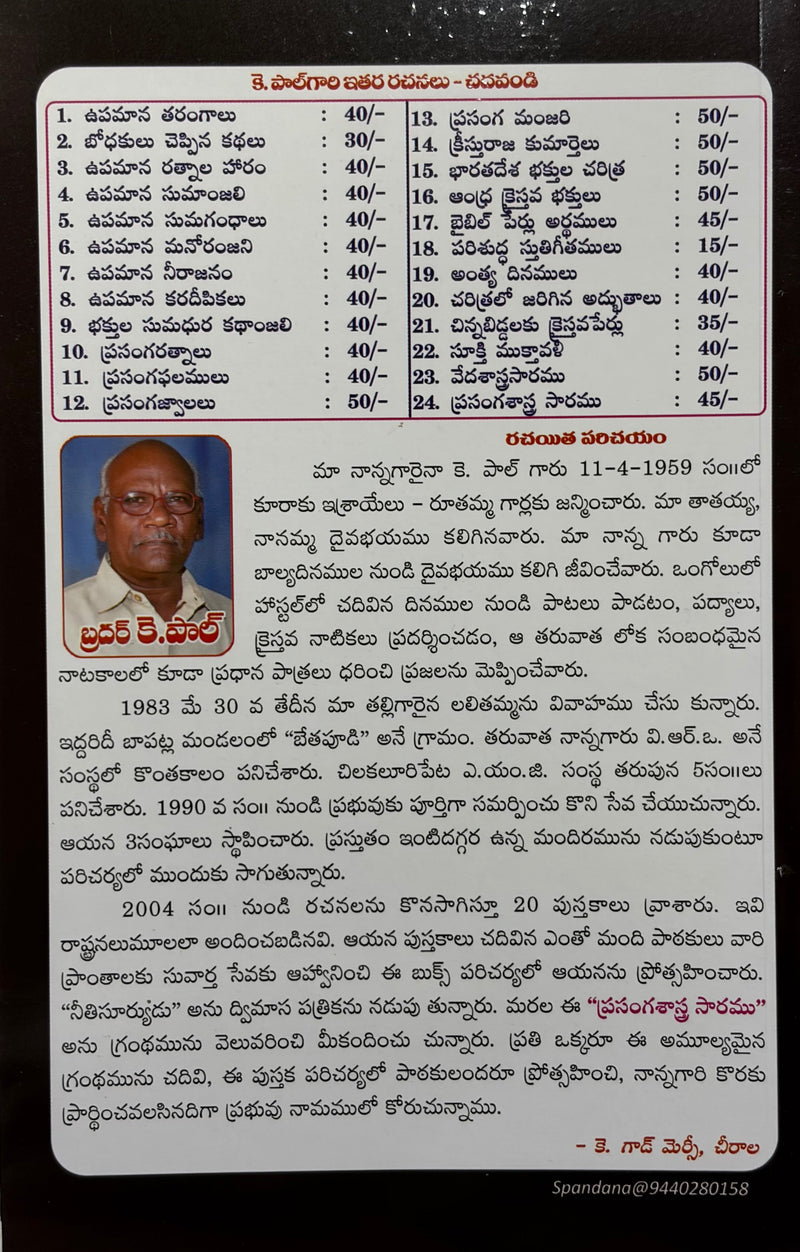 కె. పాల్‌గారి ఇతర రచనలు - చదవండి
1. ఉపమాన తరంగాలు : 40/-
2. బోధకులు చెప్పిన కథలు : 30/-
3. ఉపమాన రత్నాల హారం : 40/-
4. ఉపమాన సుమాంజలి : 40/-
5. ఉపమాన సుమగంధాలు : 40/-
6. ఉపమాన మనోరంజని : 40/-
7. ఉపమాన నీరాజనం : 40/-
8. ఉపమాన కరదీపికలు : 40/-
9. భక్తుల సుమధుర కథాంజలి : 40/-
10. ప్రసంగరత్నాలు : 40/-
11. ప్రసంగఫలములు : 40/-
12. ప్రసంగజ్వాలలు : 50/-
13. ప్రసంగ మంజరి : 50/-
14. క్రీస్తురాజ కుమార్తెలు : 50/-
15. భారతదేశ భక్తుల చరిత్ర : 50/-
16. ఆంధ్ర క్రైస్తవ భక్తులు : 50/-
17. బైబిల్ పేర్లు అర్థములు : 45/-
18. పరిశుద్ధ స్తుతిగీతములు : 15/-
19. అంత్య దినములు : 40/-
20. చరిత్రలో జరిగిన అద్భుతాలు : 40/-
21. చిన్నబిడ్డలకు క్రైస్తవపేర్లు : 35/-
22. సూక్తి ముక్తావళి : 40/-
23. వేదశాస్త్రసారము : 50/-
24. ప్రసంగశాస్త్ర సారము : 45/-
రచయిత పరిచయం
మా నాన్నగారైనా కె. పాల్ గారు 11-4-1959 సం॥లో
కూరాకు ఇశ్రాయేలు - రూతమ్మ గార్లకు జన్మించారు. మా తాతయ్య,
నానమ్మ దైవభయము కలిగినవారు. మా నాన్న గారు కూడా
బాల్యదినముల నుండి దైవభయము కలిగి జీవించేవారు. ఒంగోలులో
హాస్టల్‌లో చదివిన దినముల నుండి పాటలు పాడటం, పద్యాలు,
క్రైస్తవ నాటికలు ప్రదర్శించడం, ఆ తరువాత లోక సంబంధమైన
బ్రదర్ కె.పాల్
నాటకాలలో కూడా ప్రధాన పాత్రలు ధరించి ప్రజలను మెప్పించేవారు.
1983 మే 30 వ తేదీన మా తల్లిగారైన లలితమ్మను వివాహము చేసు కున్నారు.
ఇద్దరిదీ బాపట్ల మండలంలో “బేతపూడి” అనే గ్రామం. తరువాత నాన్నగారు వి.ఆర్.ఒ. అనే
సంస్థలో కొంతకాలం పనిచేశారు. చిలకలూరిపేట ఎ.యం.జి. సంస్థ తరుపున 5సం॥లు
పనిచేశారు. 1990 వ సం॥ నుండి ప్రభువుకు పూర్తిగా సమర్పించు కొని సేవ చేయుచున్నారు.
ఆయన 3సంఘాలు స్థాపించారు. ప్రస్తుతం ఇంటిదగ్గర ఉన్న మందిరమును నడుపుకుంటూ
పరిచర్యలో ముందుకు సాగుతున్నారు.
2004 సం॥ నుండి రచనలను కొనసాగిస్తూ 20 పుస్తకాలు వ్రాశారు. ఇవి
రాష్ట్రనలుమూలలా అందించబడినవి. ఆయన పుస్తకాలు చదివిన ఎంతో మంది పాఠకులు వారి
ప్రాంతాలకు సువార్త సేవకు ఆహ్వానించి ఈ బుక్స్ పరిచర్యలో ఆయనను ప్రోత్సహించారు.
“నీతిసూర్యుడు” అను ద్విమాస పత్రికను నడుపు తున్నారు. మరల ఈ “ప్రసంగశాస్త్ర సారము”
అను గ్రంథమును వెలువరించి మీకందించు చున్నారు. ప్రతి ఒక్కరూ ఈ అమూల్యమైన
గ్రంథమును చదివి, ఈ పుస్తక పరిచర్యలో పాఠకులందరూ ప్రోత్సహించి, నాన్నగారి కొరకు
ప్రార్థించవలసినదిగా ప్రభువు నామములో కోరుచున్నాము.
- కె. గాడ్ మెర్సీ, చీరాల
Spandana@9440280158